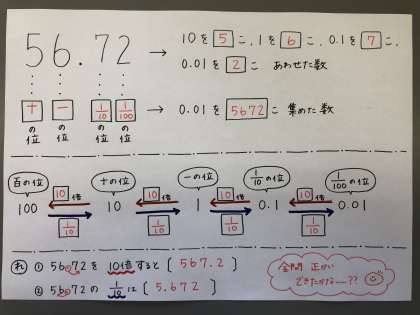 56.72 → 10を 5 こ、1を 6 こ、0.1を 7 こ、
0.01を 2 こ あわせた数
十の位 一の位 1/10の位 1/100の位 → 0.01を 5672 こ 集めた数
百の位 十の位 一の位 1/10の位 1/100の位
10倍 10倍 10倍 10倍
100 10 1 0.1 0.01
1/10 1/10 1/10 1/10
れ ① 56.72を 10倍すると〔 567.2 〕
② 56.72の 1/10は〔 5.672 〕
全問 正かい
できたかな〜??